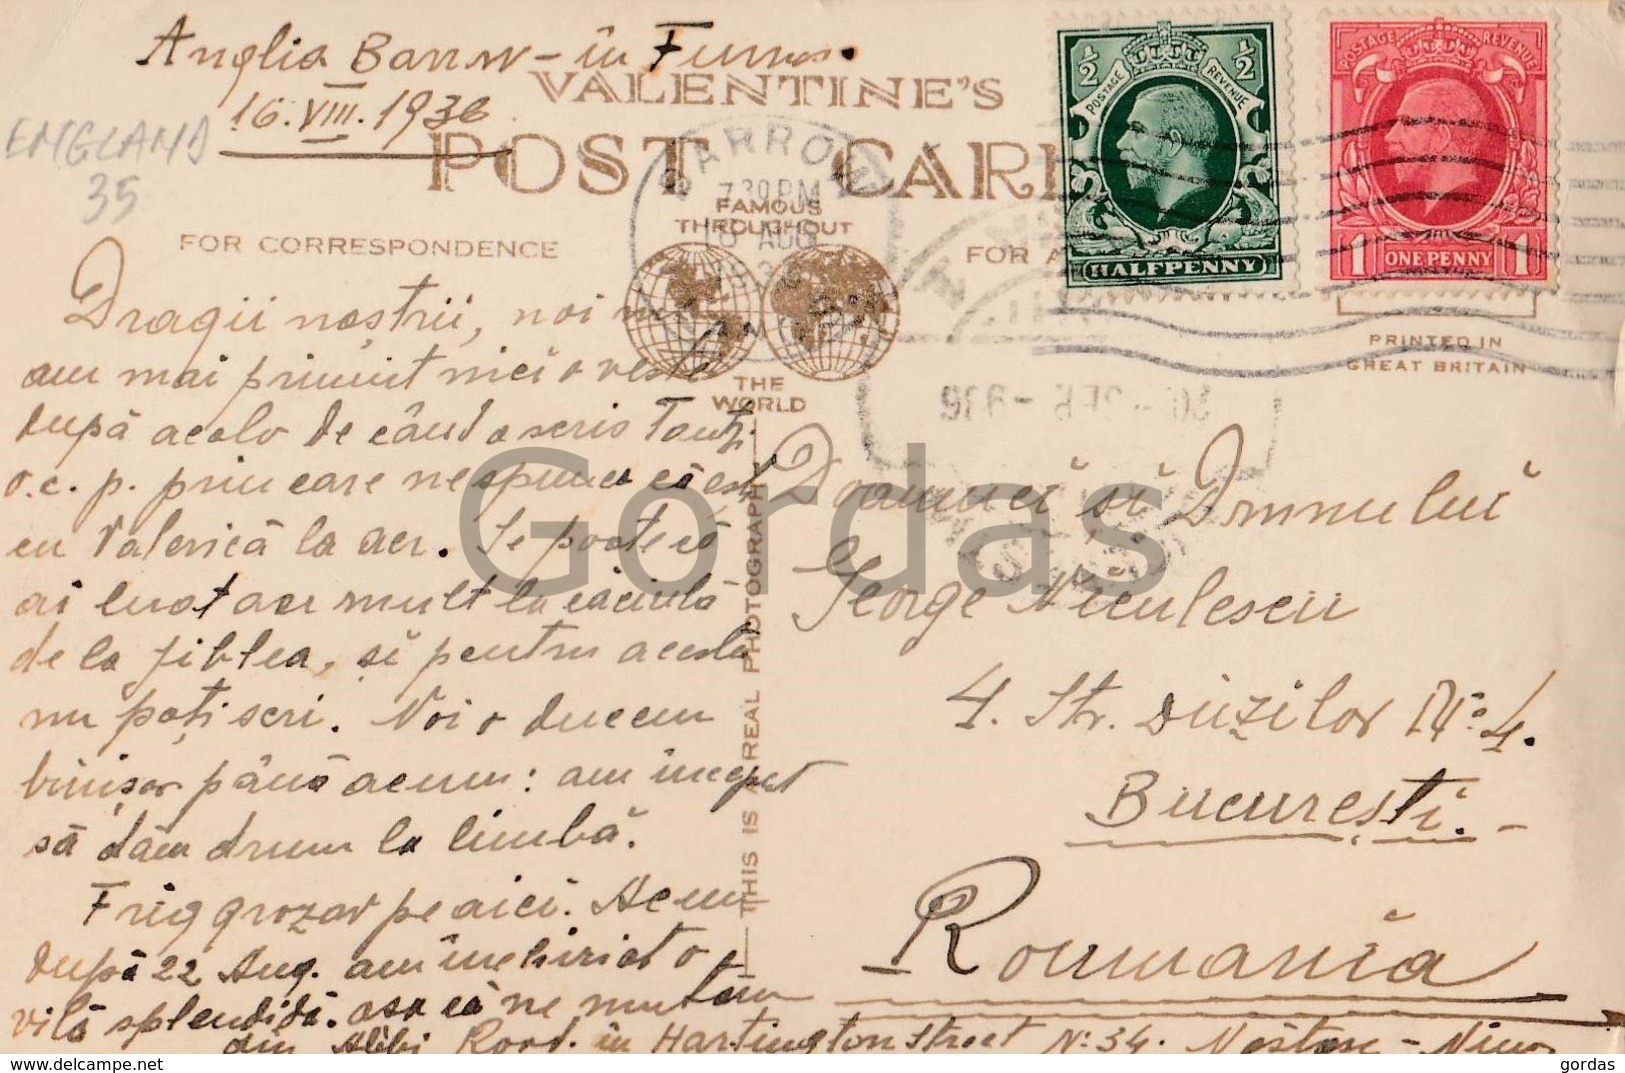 Anglia Barrow - în Furness.
16.VIII.1936
ENGLAND
35
VALENTINE'S
POST CARD
FAMOUS
THROUGHOUT
THE
WORLD
FOR CORRESPONDENCE
FOR A
BARROW
7.30 PM
16 AUG
1936
POSTAGE REVENUE
½ ½
HALFPENNY
POSTAGE REVENUE
1 ONE PENNY 1
PRINTED IN
GREAT BRITAIN
THIS IS A REAL PHOTOGRAPH
Dragii noștrii, noi nu
am mai primit nici o veste
după acolo de când a scris Tanți
o.c.p. prin care ne spunea că ești
cu Valerică la aer. Se poate că
ai luat aer mult la căciulă
de la Jiblea, și pentru acesta
nu poți scri. Noi o ducem
binișor până acum: am început
să dăm drumu la limbă.
Frig grozav pe aici. Acum
după 22 Aug. am închiriat o
vilă splendidă. așa că ne mutăm
din Alibi Road. în Hartington Street No: 34.
Doamnei și Domnului
George Niculescu
4. Str. Duzilor No: 4.
București.-
România
Gordas
https://www.delcampe.net
gordas